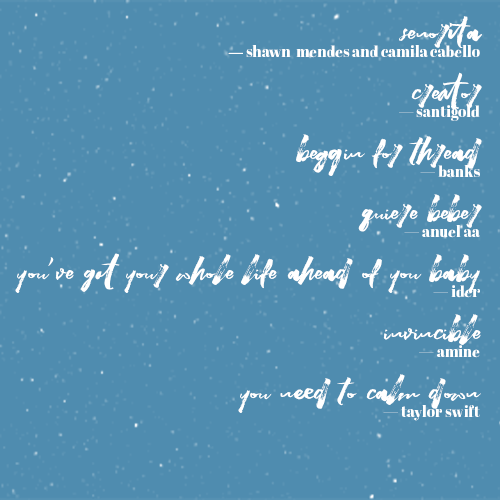 senorita
— shawn mendes and camila cabello
creator
— santigold
beggin for thread
— banks
quiere beber
— anuel aa
you've got your whole life ahead of you baby
— ider
invincible
— amine
you need to calm down
— taylor swift